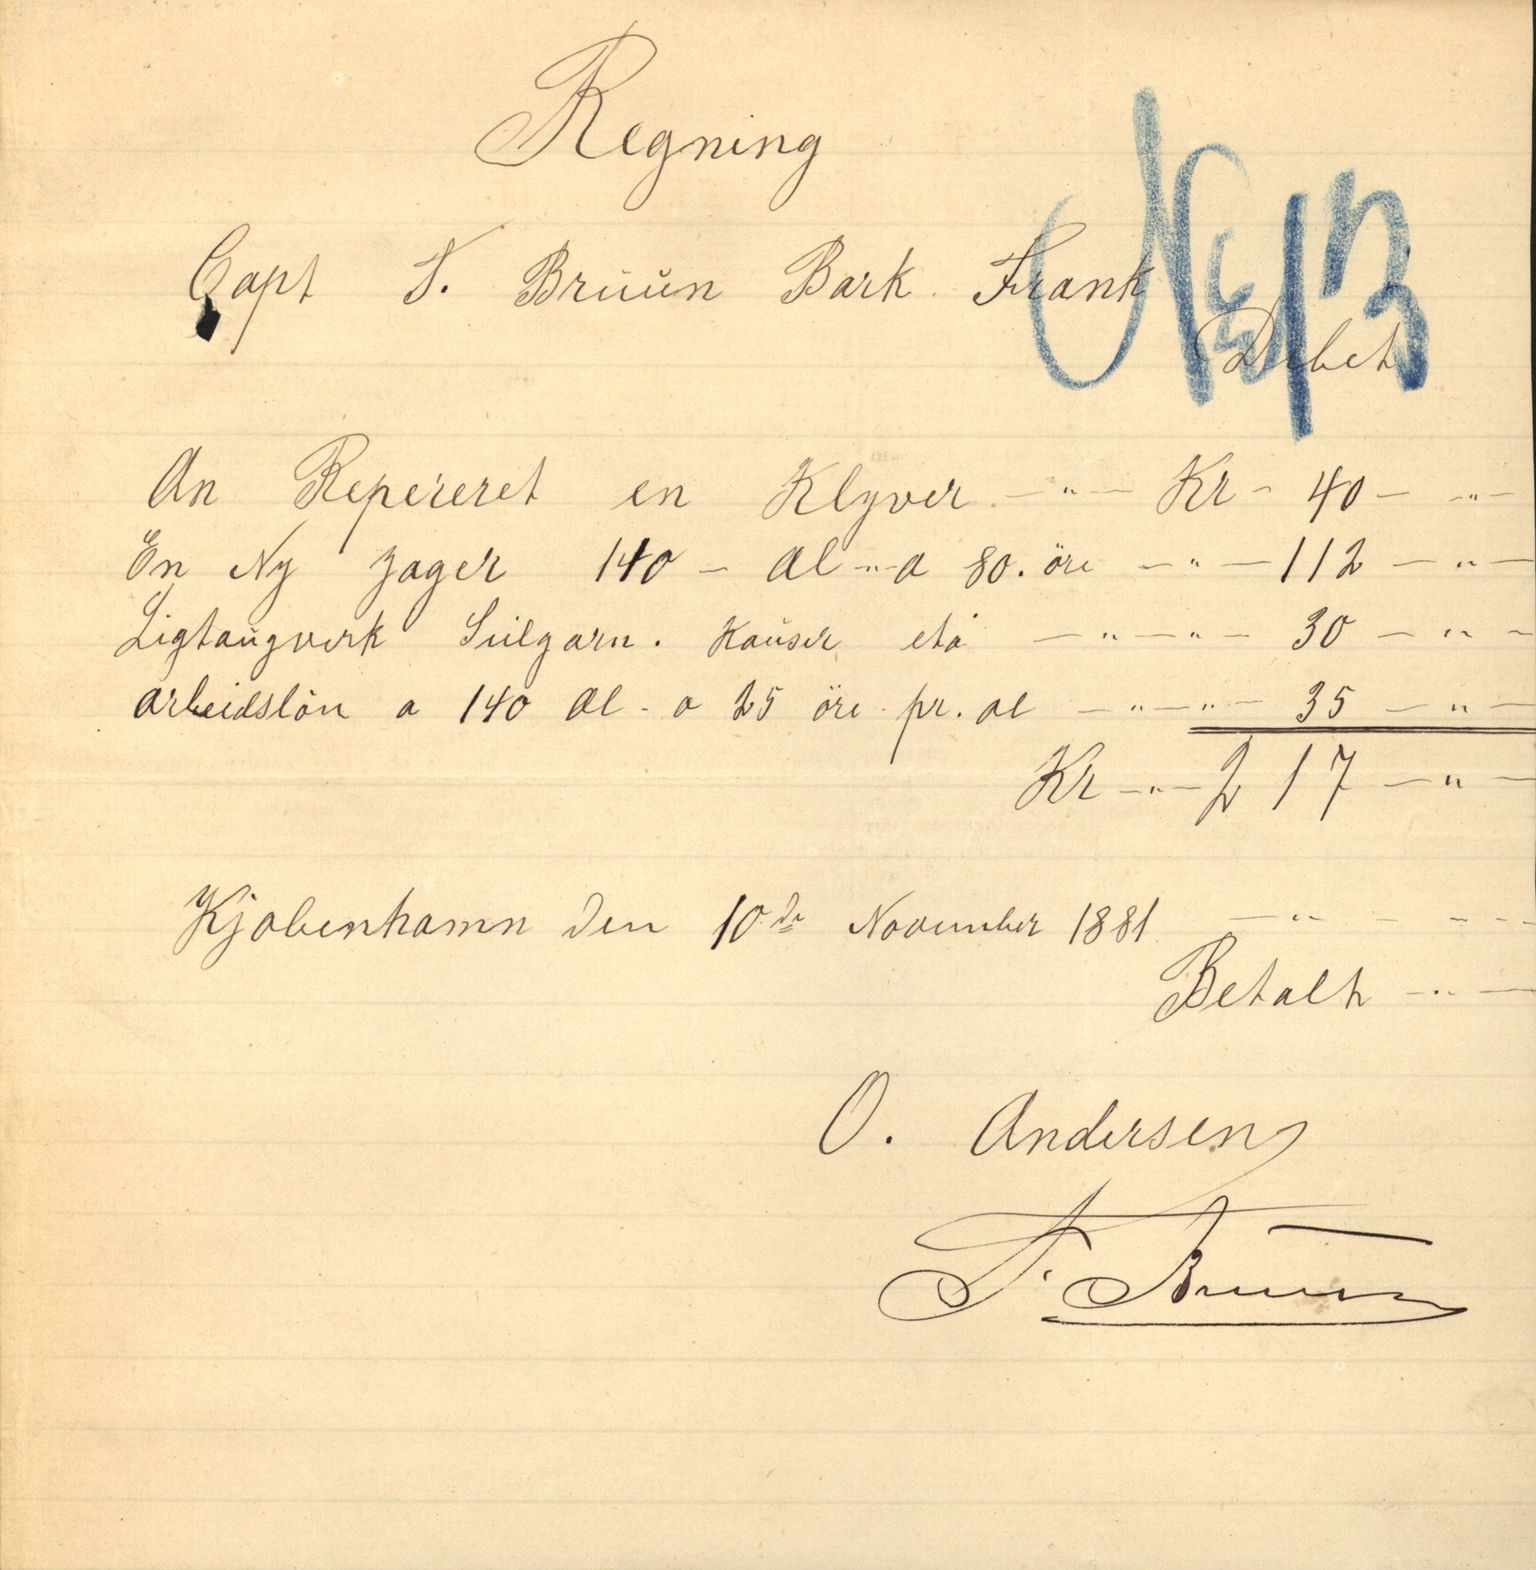 Regning
Capt T. Bruün Bark Frank
Debet
An Repereret en Klyver - " - Kr - 40 - " -
En Ny Jager 140 - Al - " - a 80. öre - " - 112 - " -
Ligtaugverk Seilgarn. Kauser eta - " - " - 30 - " -
arbeidslön a 140 Al - a 25 öre pr. al - " - " - 35 - " -
Kr - " - 217 - " -
Kjobenhamn den 10de November 1881 - " - - - -
Betalt - " -
O. Andersen
T. Bruun